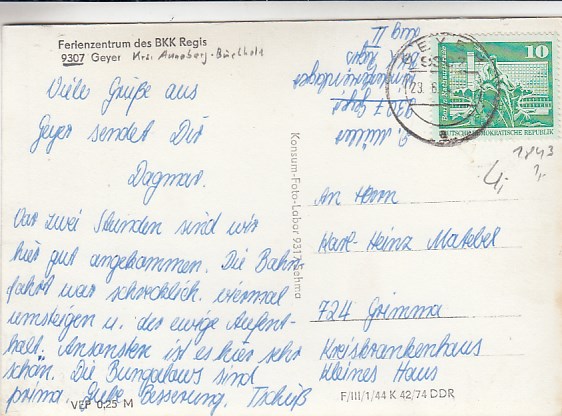 Ferienzentrum des BKK Regis
9307 Geyer Krs. Annaberg-Buchholz
Viele Grüße aus
Geyer sendet Dir
Dagmar.
Vor zwei Stunden sind wir
hier gut angekommen. Die Bahn-
fahrt war schrecklich. viermal
umsteigen u. der ewige Aufent-
halt. Ansonsten ist es hier sehr
schön. Die Bungalows sind
prima. Gute Besserung. Tschüß
VEP 0,25 M
Konsum-Foto-Labor 9317 Sehma
D. Müller
9307 Geyer
BKK Regis
GEYER
9307
23.
a
10
Berlin, Rathausstraße
DEUTSCHE DEMOKRATISCHE REPUBLIK
1843
1,-
4,-
An Herrn
Karl-Heinz Makebel
724 Grimma
Kreiskrankenhaus
Kleines Haus
F/III/1/44 K 42/74 DDR